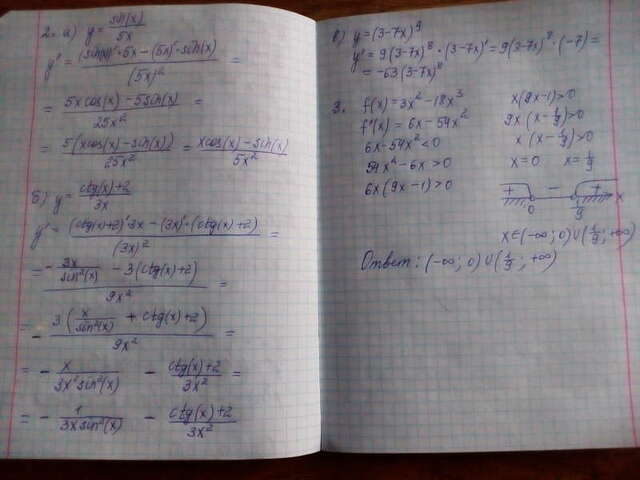 2. а) y = sin(x)/5x
y' = ((sin(x))' · 5x − (5x)' · sin(x))/(5x)² =
= (5x cos(x) − 5 sin(x))/25x² =
= 5(x cos(x) − sin(x))/25x² = (x cos(x) − sin(x))/5x²
б) y = (ctg(x)+2)/3x
y' = ((ctg(x)+2)' · 3x − (3x)' · (ctg(x)+2))/(3x)² =
= (−3x/sin²(x) − 3(ctg(x)+2))/9x² =
= − 3(x/sin²(x) + ctg(x)+2)/9x² =
= − x/3x² sin²(x) − (ctg(x)+2)/3x² =
= − 1/3x sin²(x) − (ctg(x)+2)/3x²
в) y = (3−7x)⁹
y' = 9(3−7x)⁸ · (3−7x)' = 9(3−7x)⁸ · (−7) =
= −63(3−7x)⁸
3. f(x) = 3x² − 18x³
f'(x) = 6x − 54x²
6x − 54x² < 0
54x² − 6x > 0
6x(9x−1) > 0
x(9x−1) > 0
9x(x − 1/9) > 0
x(x − 1/9) > 0
x = 0 x = 1/9
+ − +
0 1/9 x
x∈(−∞; 0)∪(1/9; +∞)
Ответ: (−∞; 0)∪(1/9; +∞)